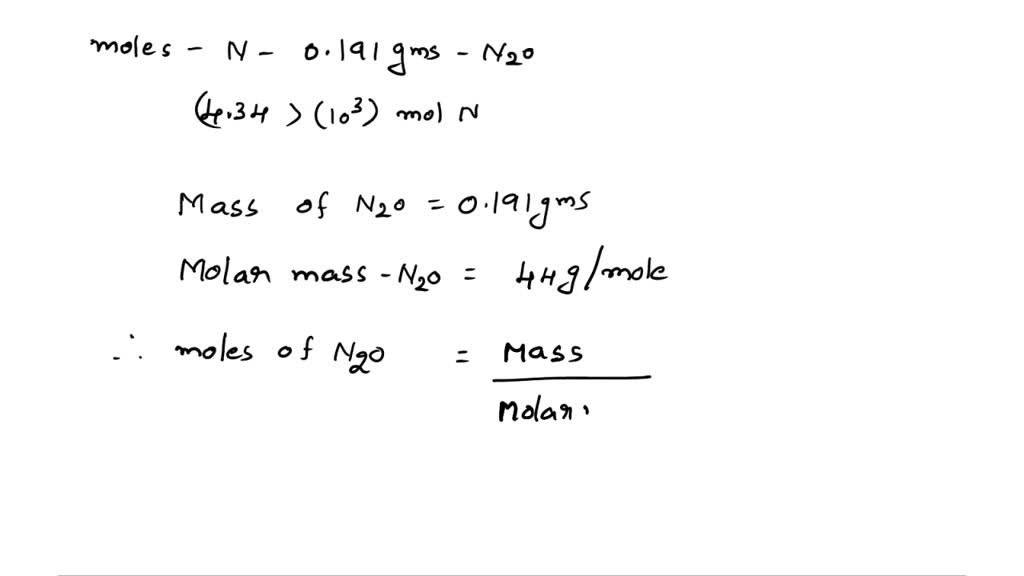 moles - N - 0.191 gms - N2O
(4.34 > (10^3) mol N
Mass of N2O = 0.191 gms
Molar mass - N2O = 44g/mole
∴ moles of N2O = Mass
Molar